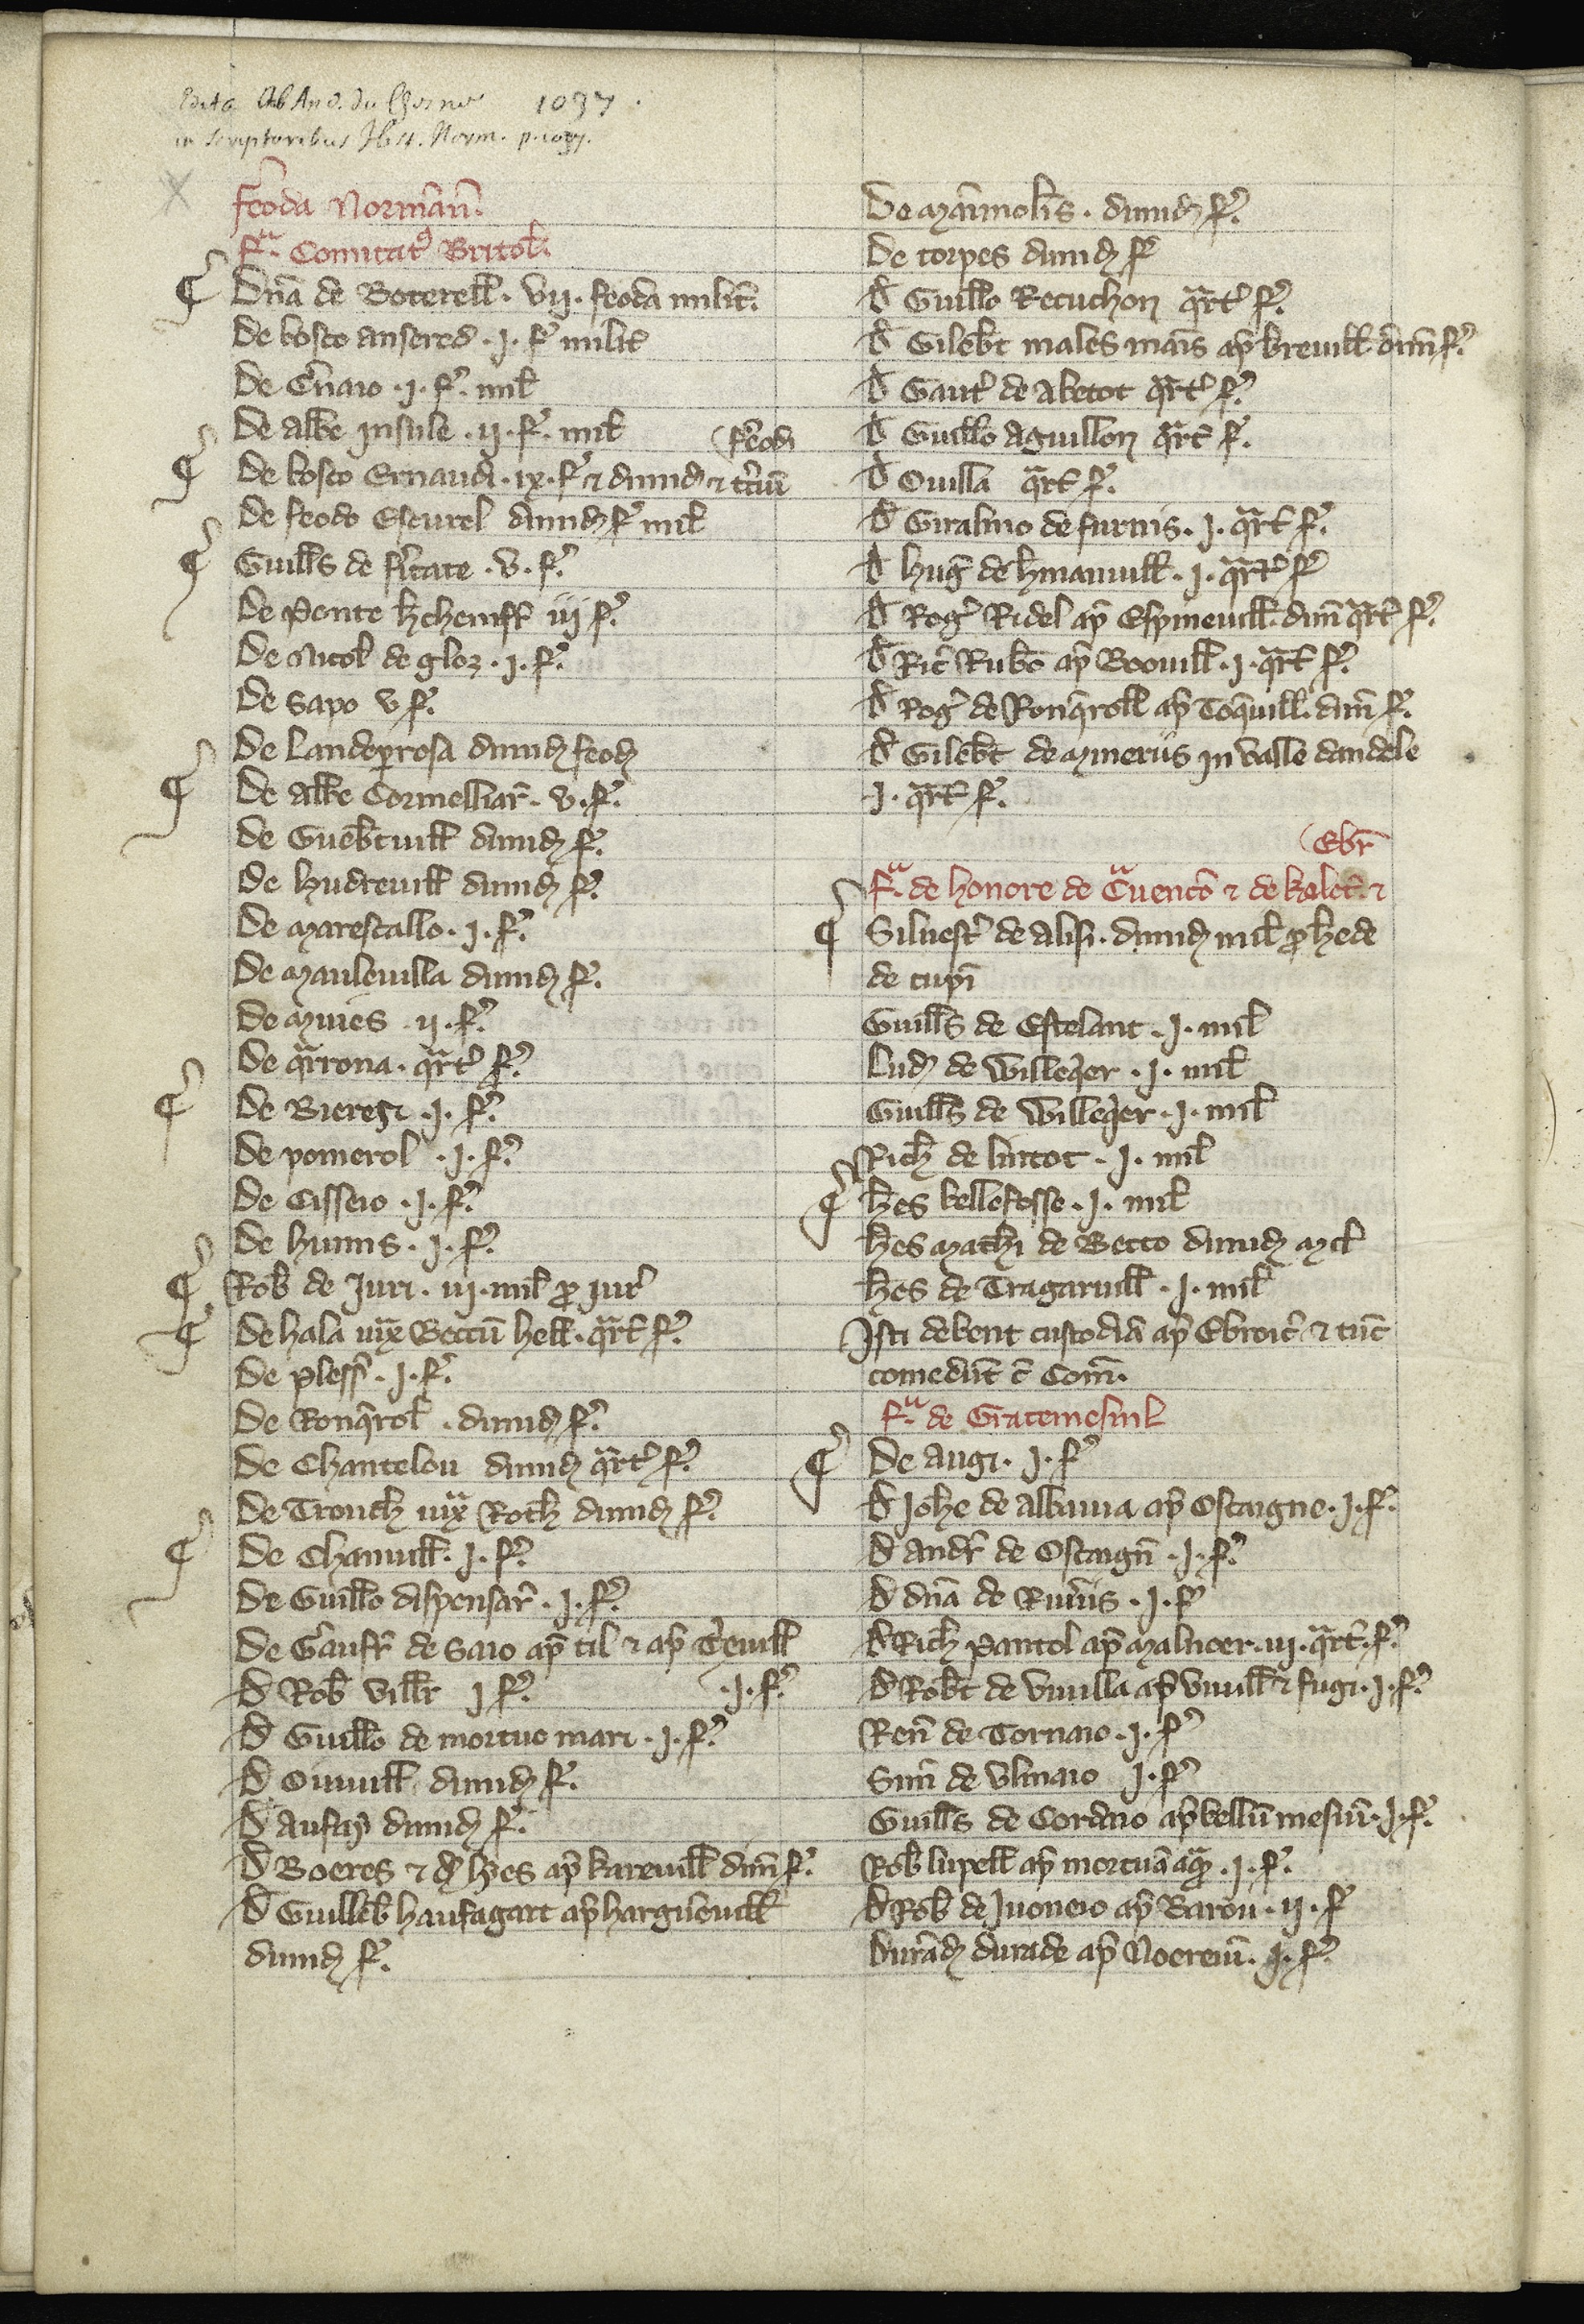 Edita Ab And. du Chesne 1037.
in scriptoribus Hist. Norm. p. 1037.
feoda Normān̄.
Fᵃ. Comitatꝰ Britol̄.
Dn̄a de Boterell̄. vii. feoda milit̄.
De bosco anseredi .i. f̉ milit̄
De C̉naio .i. f̉. mil̄
De alb̄e insule .ii. f̉. mil̄
(feodi
De bosco Ernaudi .ix. f̉ ⁊ dimid̄ ⁊ t̉ciū
De feodo Escurel dimid̄ f̉ mil̄
Guill̄s de f̉itate .v. f̉.
De Ponte
De Nicol̄ de gloz .i. f̉.
De Sapo v f̉.
De Landeꝑrosa dimid̄ feod̄
De alb̄e Cormelliar̄. v. f̉.
De Gueb̄tuill̄ dimid̄ f̉.
De hudreuill̄ dimid̄ f̉.
De Marescallo .i. f̉.
De Mauleuilla dimid̄ f̉.
De Muies .ii. f̉.
De qͣrrona. qͣrt̄ f̉.
De Bieregi .i. f̉.
De pomerol .i. f̉.
De Cisseio .i. f̉.
De huims .i. f̉.
Rob̄ de Juri. iii. mil̄ ꝓ iur̄
De hala iuxͣ Beccū hell̄. qͣrt̄ f̉.
De pless̄. i. f̉.
De Ronq̉rol̄ . dimid̄ f̉.
De Chantelou dimid̄ qͣrt̄ f̉.
De Tronch̄ iuxͣ Roth̄ dimid̄ f̉.
De Chamuill̄. i. f̉.
De Guill̄o dispensar̄ .i. f̉.
De Gaufr̄ de Saio ap̄ til ⁊ ap̄
D Rob̄ vill̄r i f̉. .i. f̉.
D Guill̄o de mortuo mari .i. f̉.
D Oiniuill̄ dimid̄ f̉.
D aufay dimid̄ f̉.
D Boeres ⁊ d̄ h̄es ap̄ kareuill̄ dim̄ f̉.
D Guilleb̄ haufagart ap̄ hargn̄euill̄
dimid̄ f̉.
De Mān̄molis. dimid̄ f̉.
De torpes dimid̄ f̉
D Guill̄o Recuchon qͣrt̄ f̉.
D Gileb̄t males mains ap̄ breuill̄ dim̄ f̉.
D Gaut̄ de abetot qͣrt̄ f̉.
D Guill̄o aguillon qͣrt̄ f̉.
D Ouilla qͣrt̄ f̉.
D Giralmo de furnis .i. qͣrt̄ f̉.
D hug̉ de hmanuill̄ .i. qͣrt̄ f̉
D Rog̉ Ridel ap̄ Espineuill̄. dim̄ qͣrt̄ f̉.
D Ric̄ Rub̄o ap̄ Boouill̄ .i. qͣrt̄ f̉.
D Rog̉ de Ronq̉roll̄ ap̄ Toq̉uill̄. dim̄ f̉.
D Gileb̄t de Mineriis in valle dandele
.i. qͣrt̄ f̉.
(Ebr̄
Fᵃ. de honore de Cͣuencō ⁊ de kalet̄. ⁊
Siluest̄ de alisi. dimid̄ mil̄ ꝓ h̄ede
de cupī
Guill̄s de Estelant .i. mil̄
Lud̄ de Willeq̉er .i. mil̄
Guill̄s de Willeq̉er .i. mil̄
Rich̄ de lintot .i. mil̄
h̄es bellefosse .i. mil̄
h̄es Math̄i de Becco dimid̄ mil̄
h̄es de Tragaruill̄ .i. mil̄
Isti debent custodiā ap̄ Ebroic̄ ⁊ tūc
comedūt c̄ Com̄.
Fᵃ. de Grātemesnil
De augi .i. f̉
D Joh̄e de albiuia ap̄ Oscaigne .i. f̉.
D andr̄ de Oscaign̄ .i. f̉.
D dn̄a de Riu̇iis .i. f̉
D Rich̄ pantol ap̄ Malnoer. iii. qͣrt̄. f̉.
D Rob̄t de Vinilla ap̄ vinill̄ ⁊ fugi. i. f̉.
Ren̄ de Tornaio .i. f̉
Sim̄ de Vlmaio i. f̉
Guill̄s de Cordaio ap̄ bellū mesiū. i. f̉.
Rob̄ lupell̄ ap̄ mortuā aq̉. i. f̉.
D Rob̄ de Juoneio ap̄ Baron .ii. f̉
Durād̄ durade ap̄ Noereiū. i. f̉.